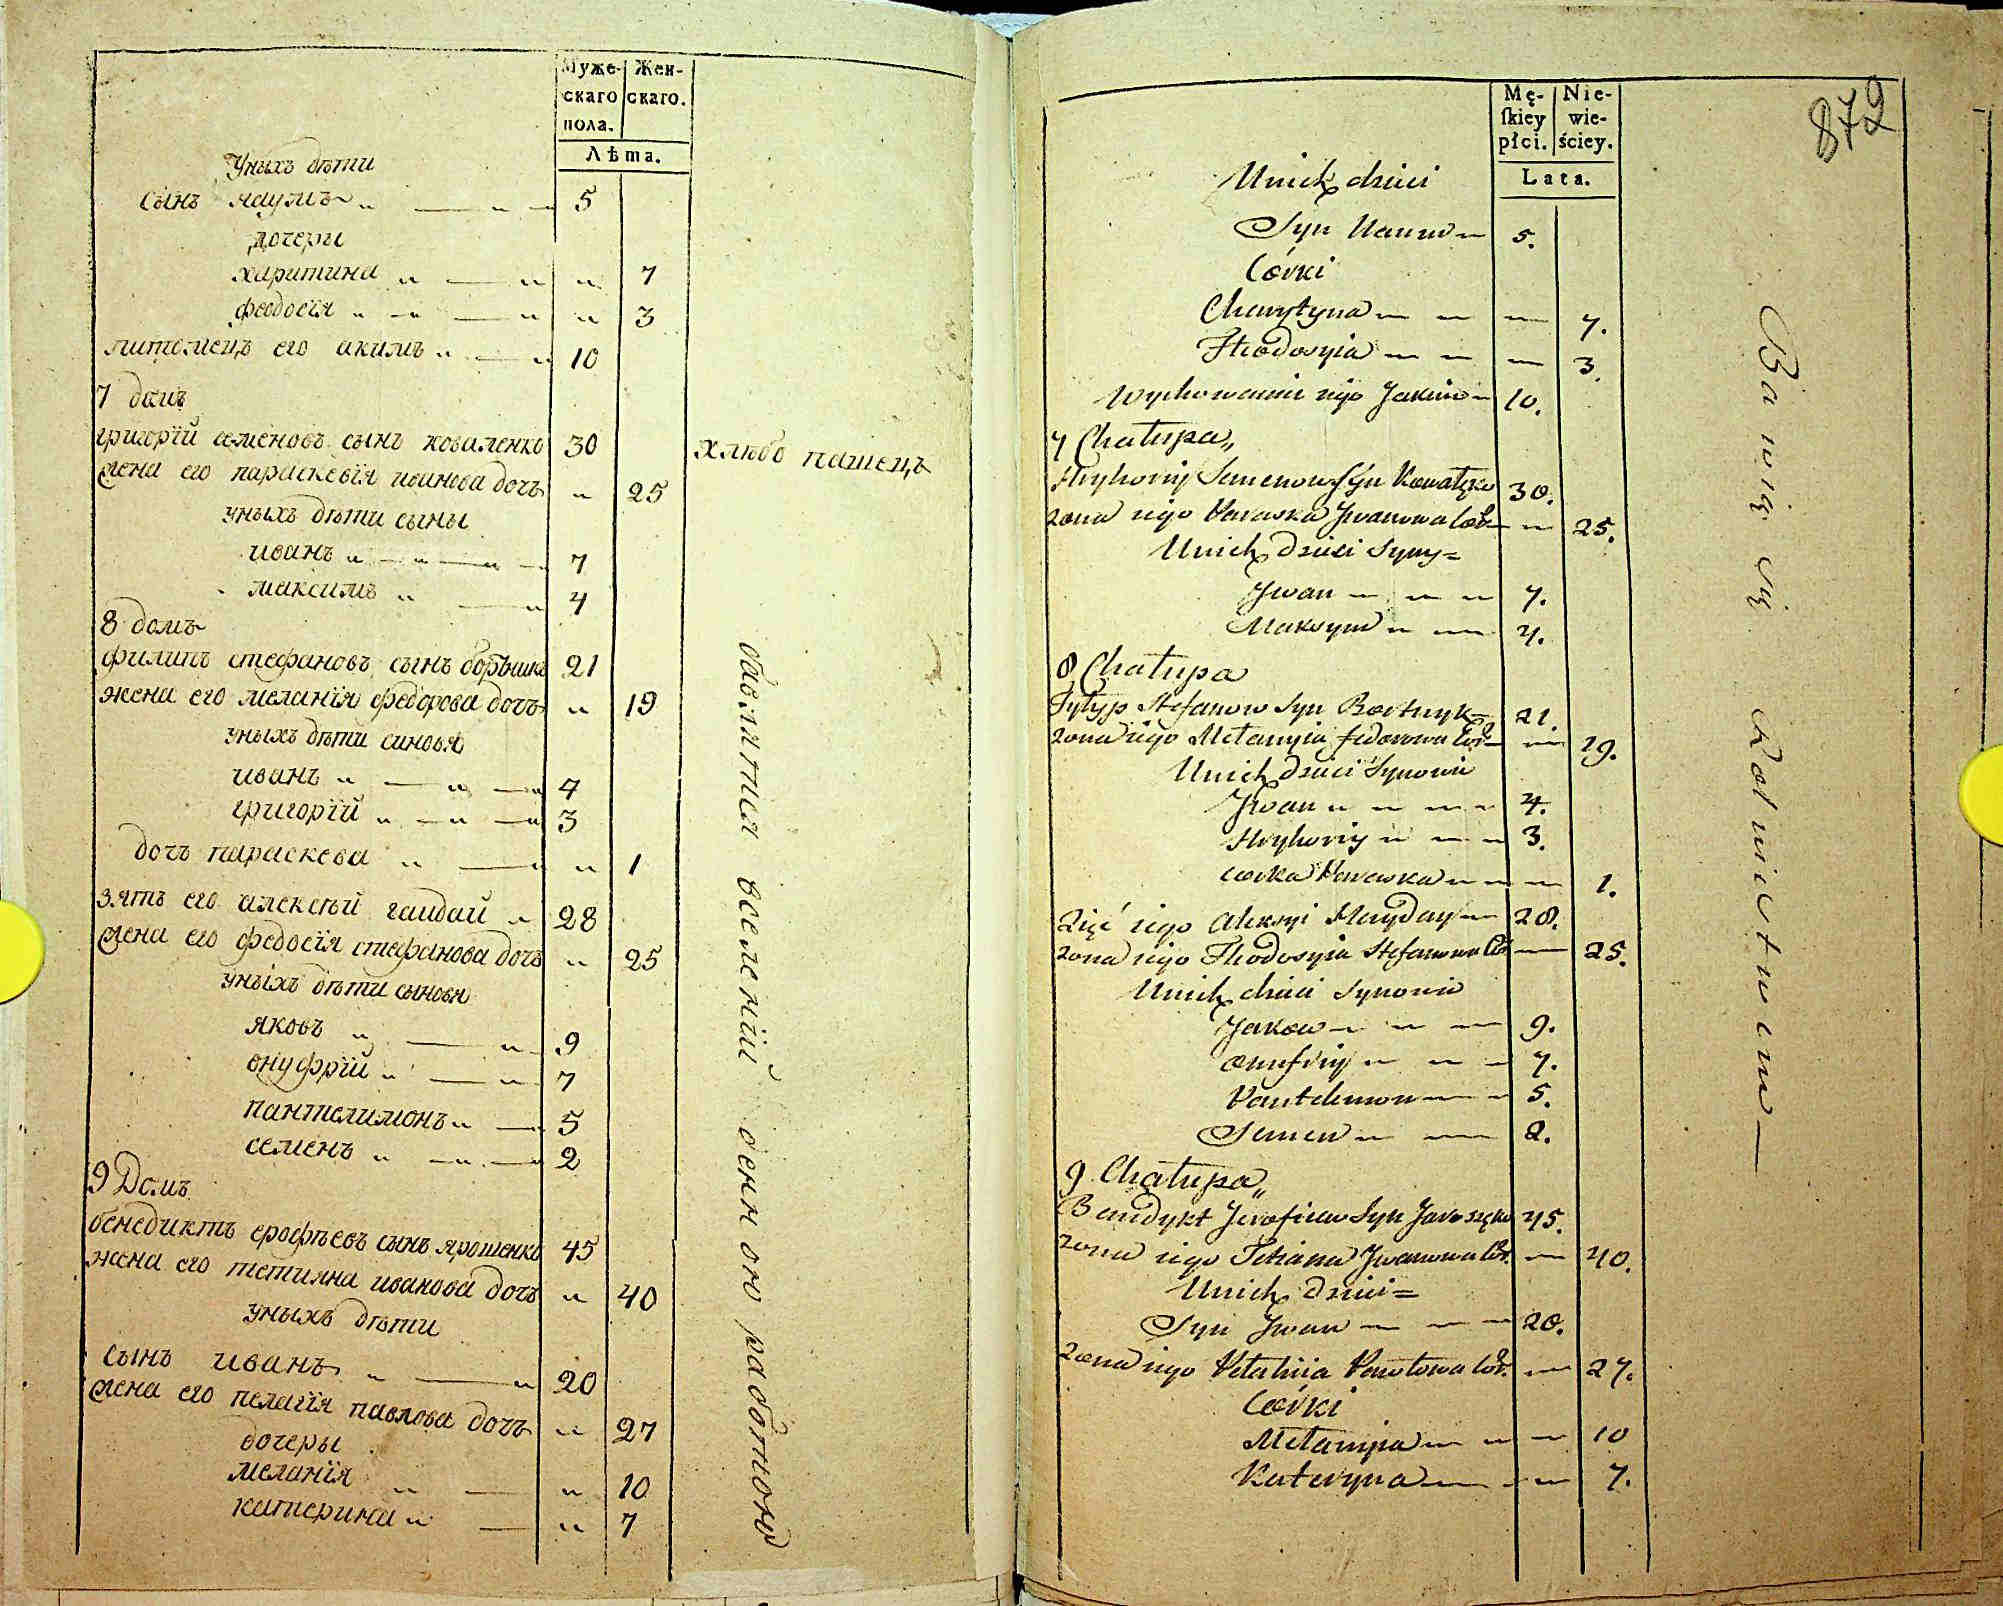 Муже-
скаго
пола.
Жен-
скаго.
Лѣта.
Уныхъ дѣти
Сынъ наумъ 5
дочери
харитина 7
феодосія 3
питомецъ его акимъ 10
7 домъ
григорій семеновъ сынъ коваленко 30
жена его параскевія иванова дочъ 25
уныхъ дѣти сыны
иванъ 7
максимъ 4
8 домъ
филипъ стефановъ сынъ 21
жена его меланія федорова дочъ 19
уныхъ дѣти синовя
иванъ 4
григорій 3
дочъ параскева 1
зять его алексѣй гайдай 28
жена его федосія стефанова дочъ 25
уныхъ дѣти сыновя
яковъ 9
онуфрій 7
пантелимонъ 5
семенъ 2
9 Домъ
бенедиктъ ерофѣевъ сынъ ярошенко 45
жена его тетияна иванова дочъ 40
уныхъ дѣти
сынъ иванъ 20
жена его пелагія павлова дочъ 27
дочеры
меланія 10
катерина 7
хлѣбо пашецъ
работою
872
Mę-
skiey
płci.
Nie-
wie-
ściey.
Lata.
Unich dzieci
Syn Naum 5.
Córki
Charytyna 7.
Fteodosyia 3.
Wychowaniec iego Jakim 10.
7 Chałupa
Hryhoriy Semenow Syn Kowalęko 30.
żona iego Paraska Jwanowa cór. 25.
Unich dzieci Syny
Jwan 7.
Maksym 4.
8 Chałupa
Fylyp Stefanow Syn 21.
żona iego Mełanyia fedorowa cór. 19.
Unich dzieci Synowie
Jwan 4.
Hryhoriy 3.
córka Paraska 1.
Zięć iego Alexyi Hayday 28.
żona iego Fteodosyia Stefanowa Cór 25.
Unich dzieci Synowie
Jakow 9.
onufriy 7.
Pantelimon 5.
Semen 2.
9 Chałupa
Benedykt Jerofiew Syn Jaroszęko 45.
żona iego Tetiana Jwanowa cór. 40.
Unich dzieci
Syn Jwan 20.
żona iego Pelahiia Pawłowa cór. 27.
Córki
Mełanyia 10
Kateryna 7.
Bawią się Rolnictwem